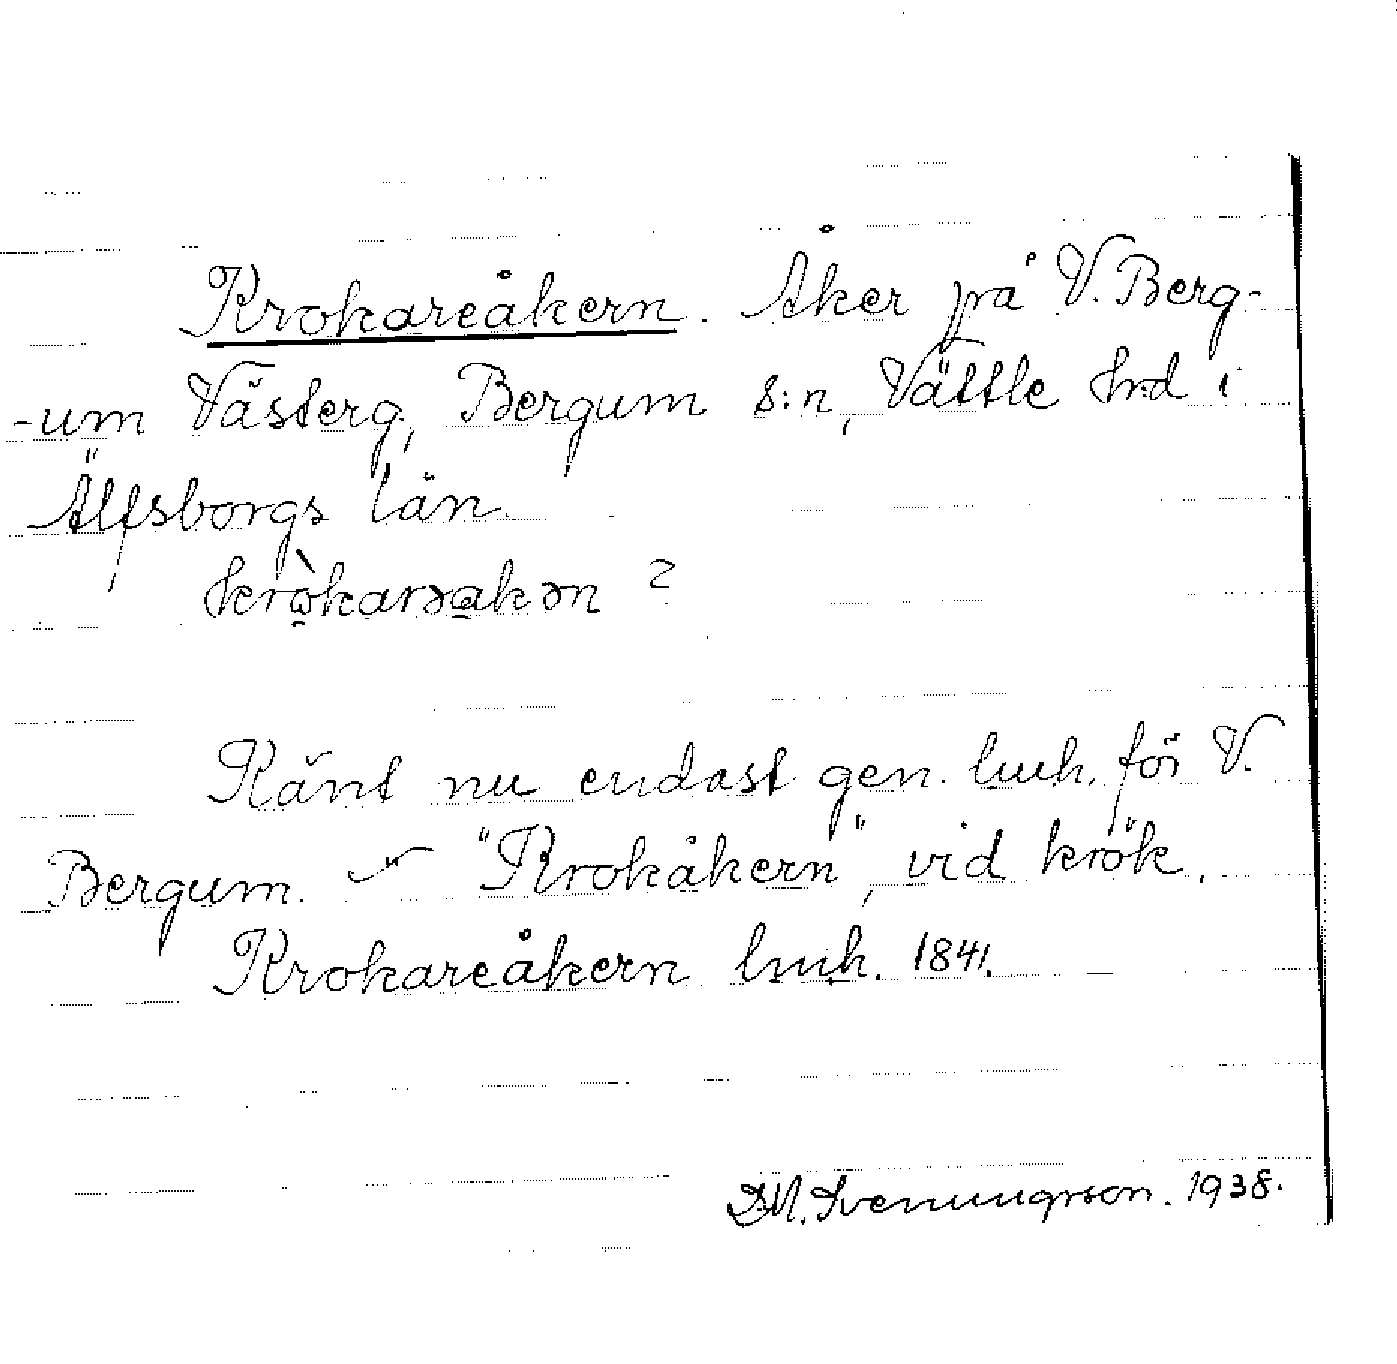 Krokareåkern. Åker på V. Berg-
-um Västerg, Bergum s:n, Vättle hrd i
Älfsborgs län.
krò̤karəa̲kən ?
Känt nu endast gen. lmh. för V.
Bergum. "Krokåkern", vid krök.
Krokareåkern lmh. 1841.
D.N. Svenungsson. 1938.